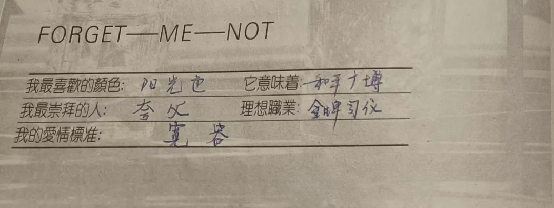 FORGET—ME—NOT
我最喜歡的顏色: 阳光色 它意味着: 和平广博
我最崇拜的人: 夸父 理想職業: 金牌司仪
我的愛情標准: 寬容